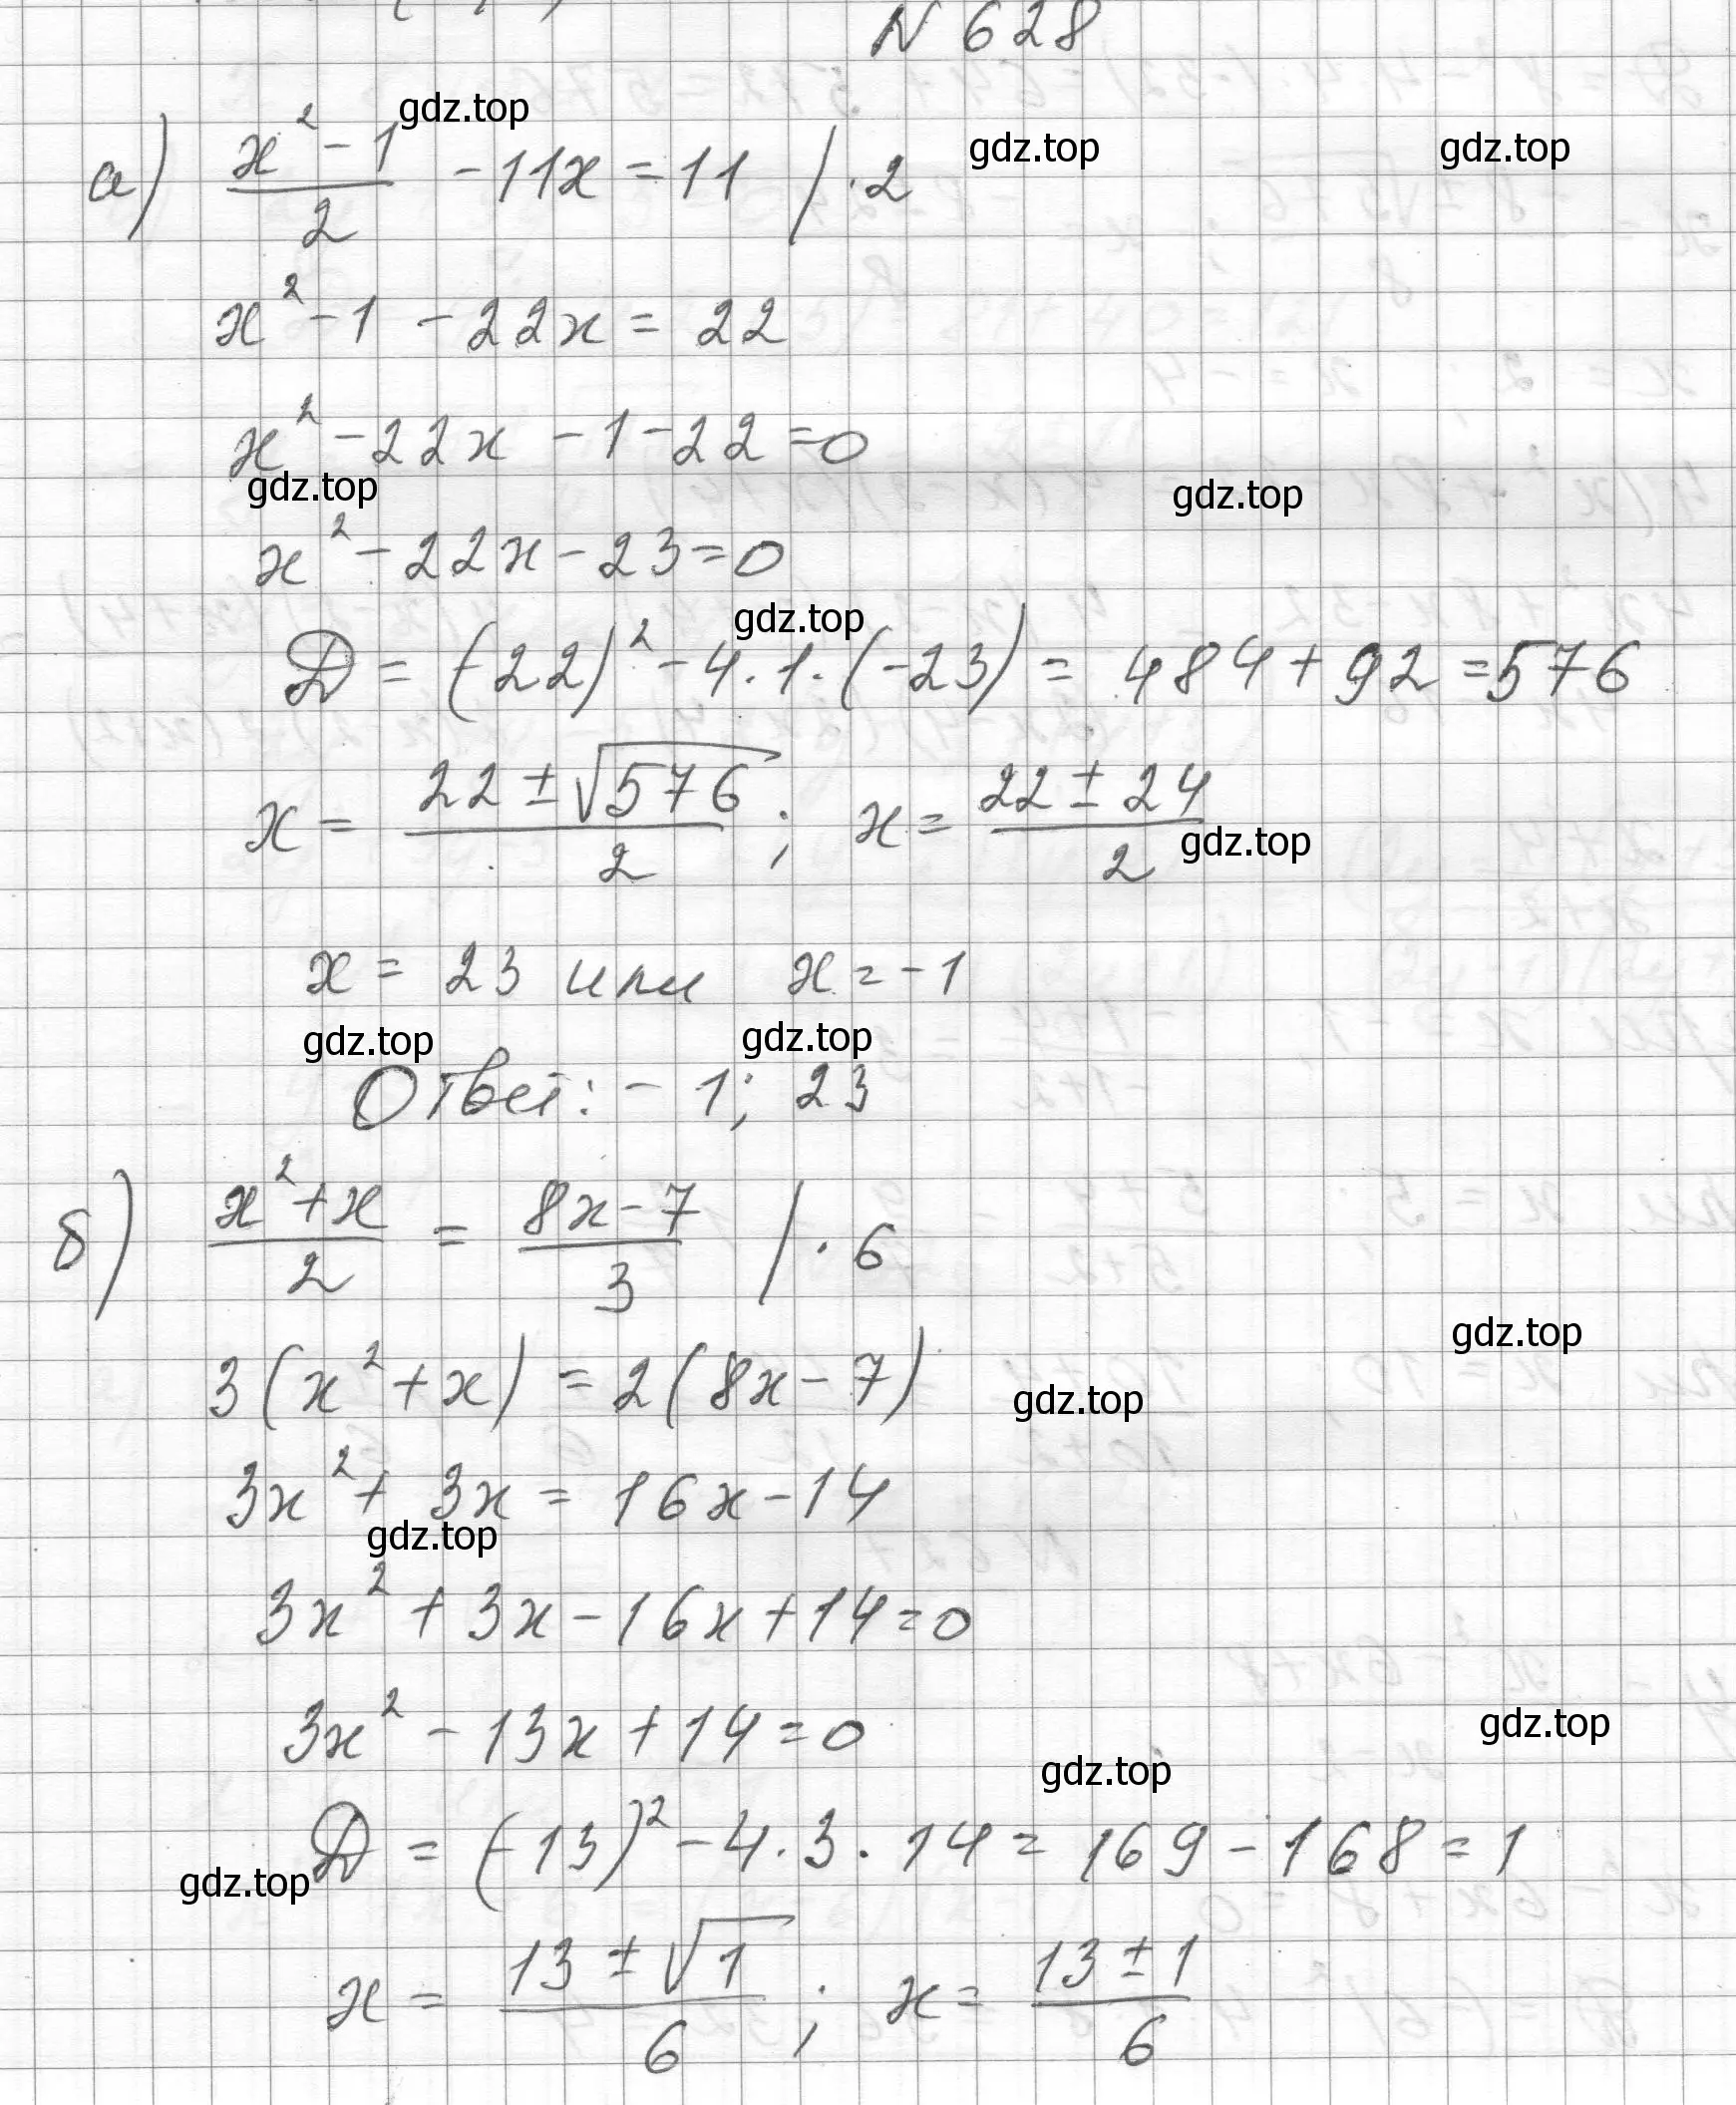 N 628
gdz.top
а) (x² - 1)/2 - 11x = 11 / · 2
gdz.top gdz.top
x² - 1 - 22x = 22
x² - 22x - 1 - 22 = 0
gdz.top gdz.top
x² - 22x - 23 = 0
gdz.top
D = (-22)² - 4 · 1 · (-23) = 484 + 92 = 576
x = (22 ± √576)/2 ; x = (22 ± 24)/2
gdz.top
x = 23 или x = -1
gdz.top gdz.top
Ответ: -1; 23
б) (x² + x)/2 = (8x - 7)/3 / · 6
gdz.top
3(x² + x) = 2(8x - 7)
gdz.top
3x² + 3x = 16x - 14
gdz.top
3x² + 3x - 16x + 14 = 0
3x² - 13x + 14 = 0
gdz.top
gdz.top
D = (-13)² - 4 · 3 · 14 = 169 - 168 = 1
gdz.top
x = (13 ± √1)/6 ; x = (13 ± 1)/6